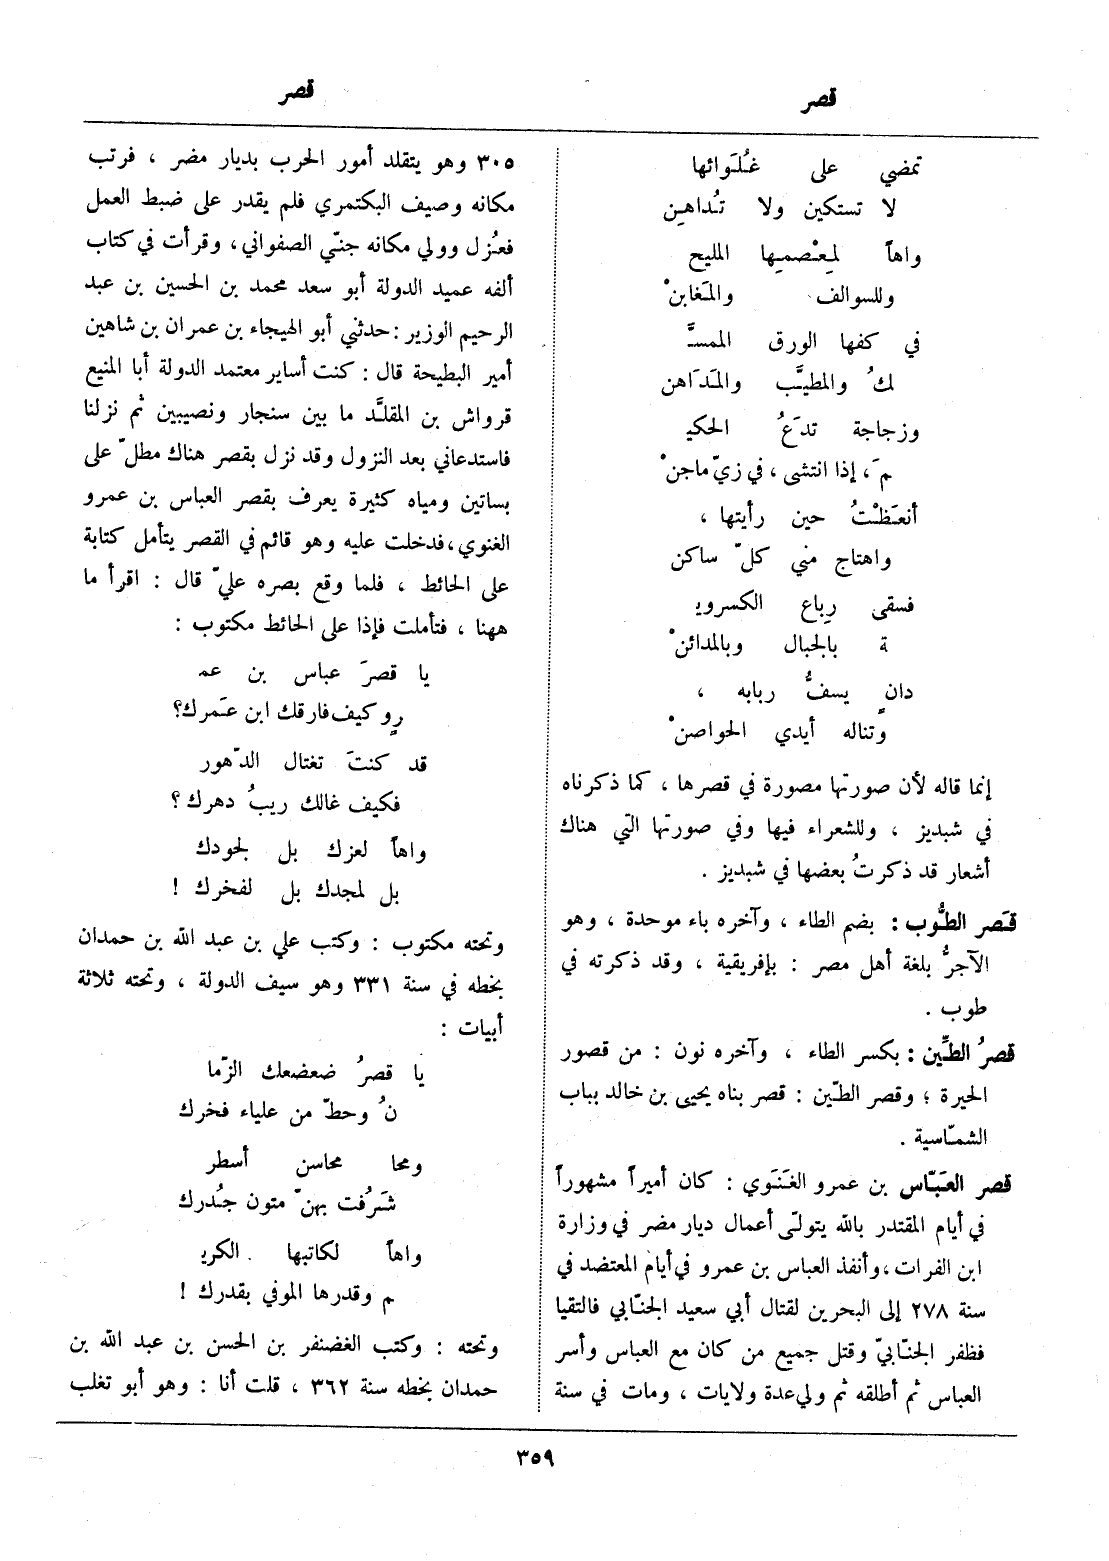 قصر
قصر
تمضي على غُلَوائها
لا تستكين ولا تُداهِن
واهاً لمِعْصمِها المليح
وللسوالف والمَغابنْ
في كفها الورق الممسَّـ
ـكُ والمطيَّب والمَدَاهن
وزجاجة تدَعُ الحكيـ
ـمَ، إذا انتشى، في زيّ ماجنْ
أنعَظْتُ حين رأيتها،
واهتاج مني كلّ ساكن
فسقى رِباع الكسرويـ
ـة بالجبال وبالمدائنْ
دانٍ يسفُّ ربابه،
وتناله أيدي الحواضنْ
إنما قاله لأن صورتها مصورة في قصرها، كما ذكرناه
في شبديز، وللشعراء فيها وفي صورتها التي هناك
أشعار قد ذكرتُ بعضها في شبديز.
قَصر الطُّوب: بضم الطاء، وآخره باء موحدة، وهو
الآجرُّ بلغة أهل مصر: بإفريقية، وقد ذكرته في
طوب.
قصرُ الطِّين: بكسر الطاء، وآخره نون: من قصور
الحيرة؛ وقصر الطّين: قصر بناه يحيى بن خالد بباب
الشمّاسية.
قصر العَبّاس بن عمرو الغَنَوي: كان أميراً مشهوراً
في أيام المقتدر بالله يتولّى أعمال ديار مضر في وزارة
ابن الفرات، وأنفذ العباس بن عمرو في أيام المعتضد في
سنة ٢٧٨ إلى البحرين لقتال أبي سعيد الجنّابي فالتقيا
فظفر الجنّابيّ وقتل جميع من كان مع العباس وأسر
العباس ثم أطلقه ثم ولي عدة ولايات، ومات في سنة
٣٠٥ وهو يتقلد أمور الحرب بديار مضر، فرتب
مكانه وصيف البكتمري فلم يقدر على ضبط العمل
فعُزل وولي مكانه جنّي الصفواني، وقرأت في كتاب
ألفه عميد الدولة أبو سعد محمد بن الحسين بن عبد
الرحيم الوزير: حدثني أبو الهيجاء بن عمران بن شاهين
أمير البطيحة قال: كنت أساير معتمد الدولة أبا المنيع
قرواش بن المقلَّد ما بين سنجار ونصيبين ثم نزلنا
فاستدعاني بعد النزول وقد نزل بقصر هناك مطلّ على
بساتين ومياه كثيرة يعرف بقصر العباس بن عمرو
الغنوي، فدخلت عليه وهو قائم في القصر يتأمل كتابة
على الحائط، فلما وقع بصره عليّ قال: اقرأ ما
ههنا، فتأملت فإذا على الحائط مكتوب:
يا قصرَ عباس بن عمـ
ـرٍو كيف فارقك ابن عَمرك؟
قد كنتَ تغتال الدّهور
فكيف غالك ريبُ دهرك؟
واهاً لعزك بل لجودك
بل لمجدك بل لفخرك!
وتحته مكتوب: وكتب علي بن عبد الله بن حمدان
بخطه في سنة ٣٣١ وهو سيف الدولة، وتحته ثلاثة
أبيات:
يا قصرُ ضعضعك الزّما
نُ وحطّ من علياء فخرك
ومحا محاسن أسطر
شَرُفت بهنّ متون جُدرك
واهاً لكاتبها الكريـ
ـم وقدرها الموفي بقدرك!
وتحته: وكتب الغضنفر بن الحسن بن عبد الله بن
حمدان بخطه سنة ٣٦٢، قلت أنا: وهو أبو تغلب
٣٥٩